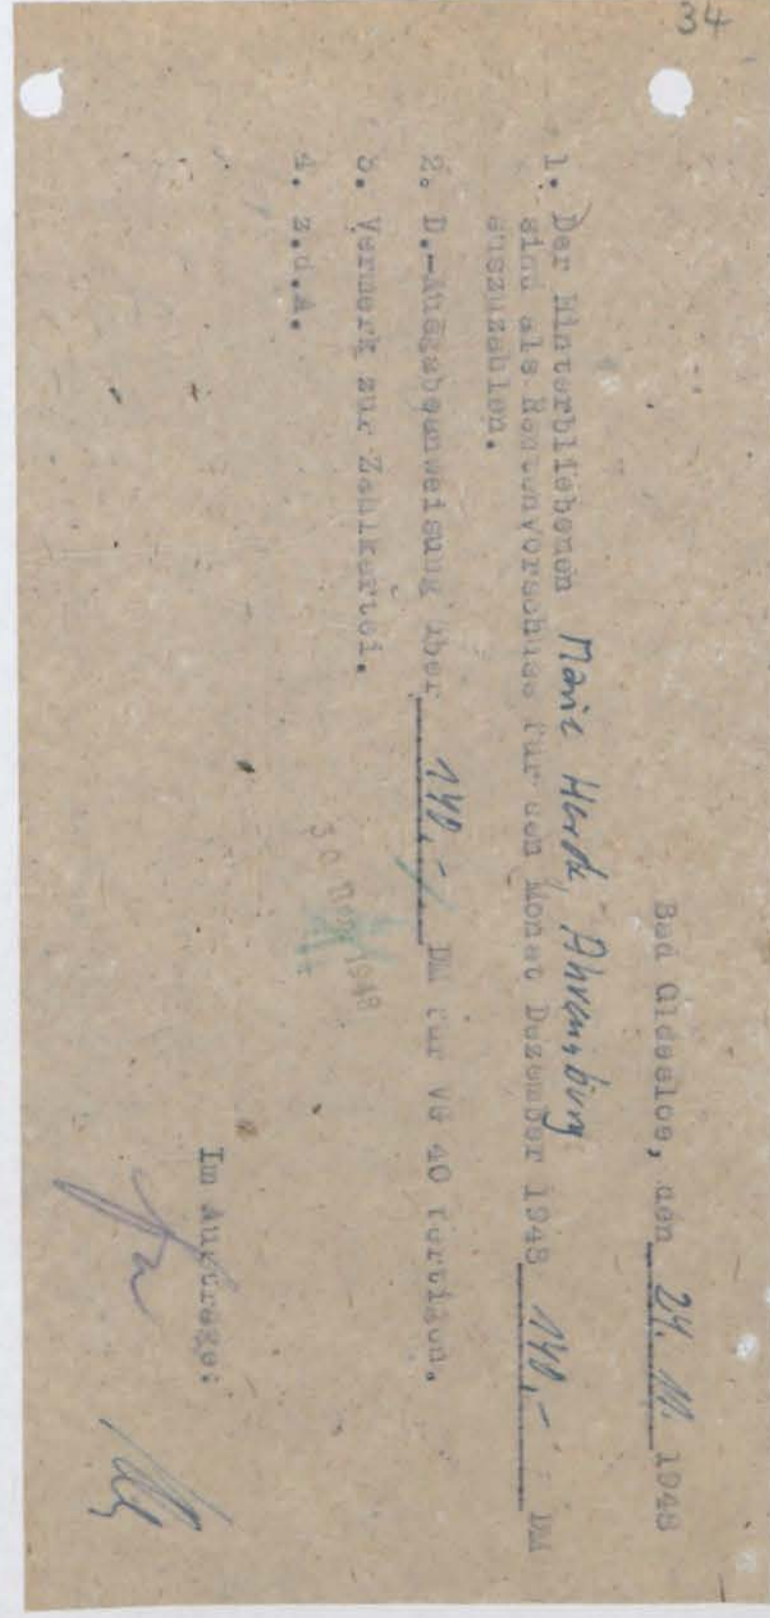 34
Bad Oldesloe, den 24. 11. 1948
1. Der Hinterbliebenen Marie Ahrensburg
sind als Rentenvorschuss für den Monat Dezember 1948 140,- DM
auszuzahlen.
2. D.-Ausgabeanweisung über 140,- DM für VG 40 fertigen.
3. Vermerk zur Zahlkartei.
4. z.d.A.
30 Nov. 1948
Im Auftrage: